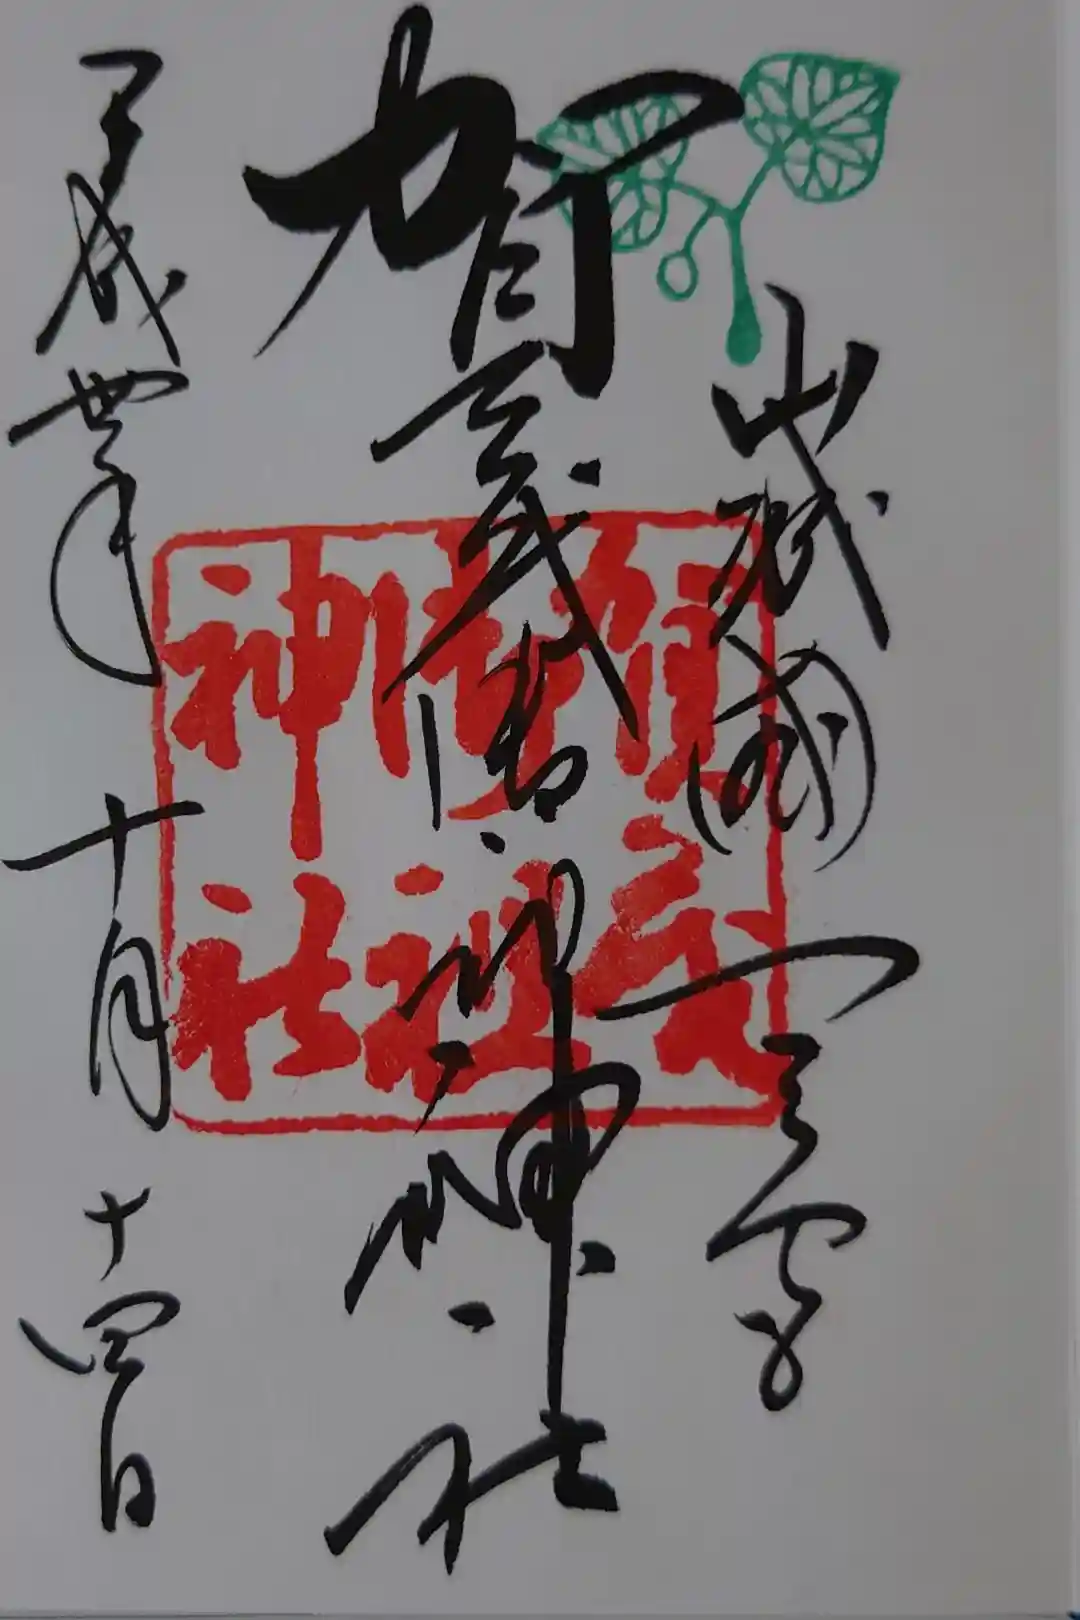 山城國一之宮
賀茂御祖神社
平成丗年十月十四日
賀茂
御祖
神社